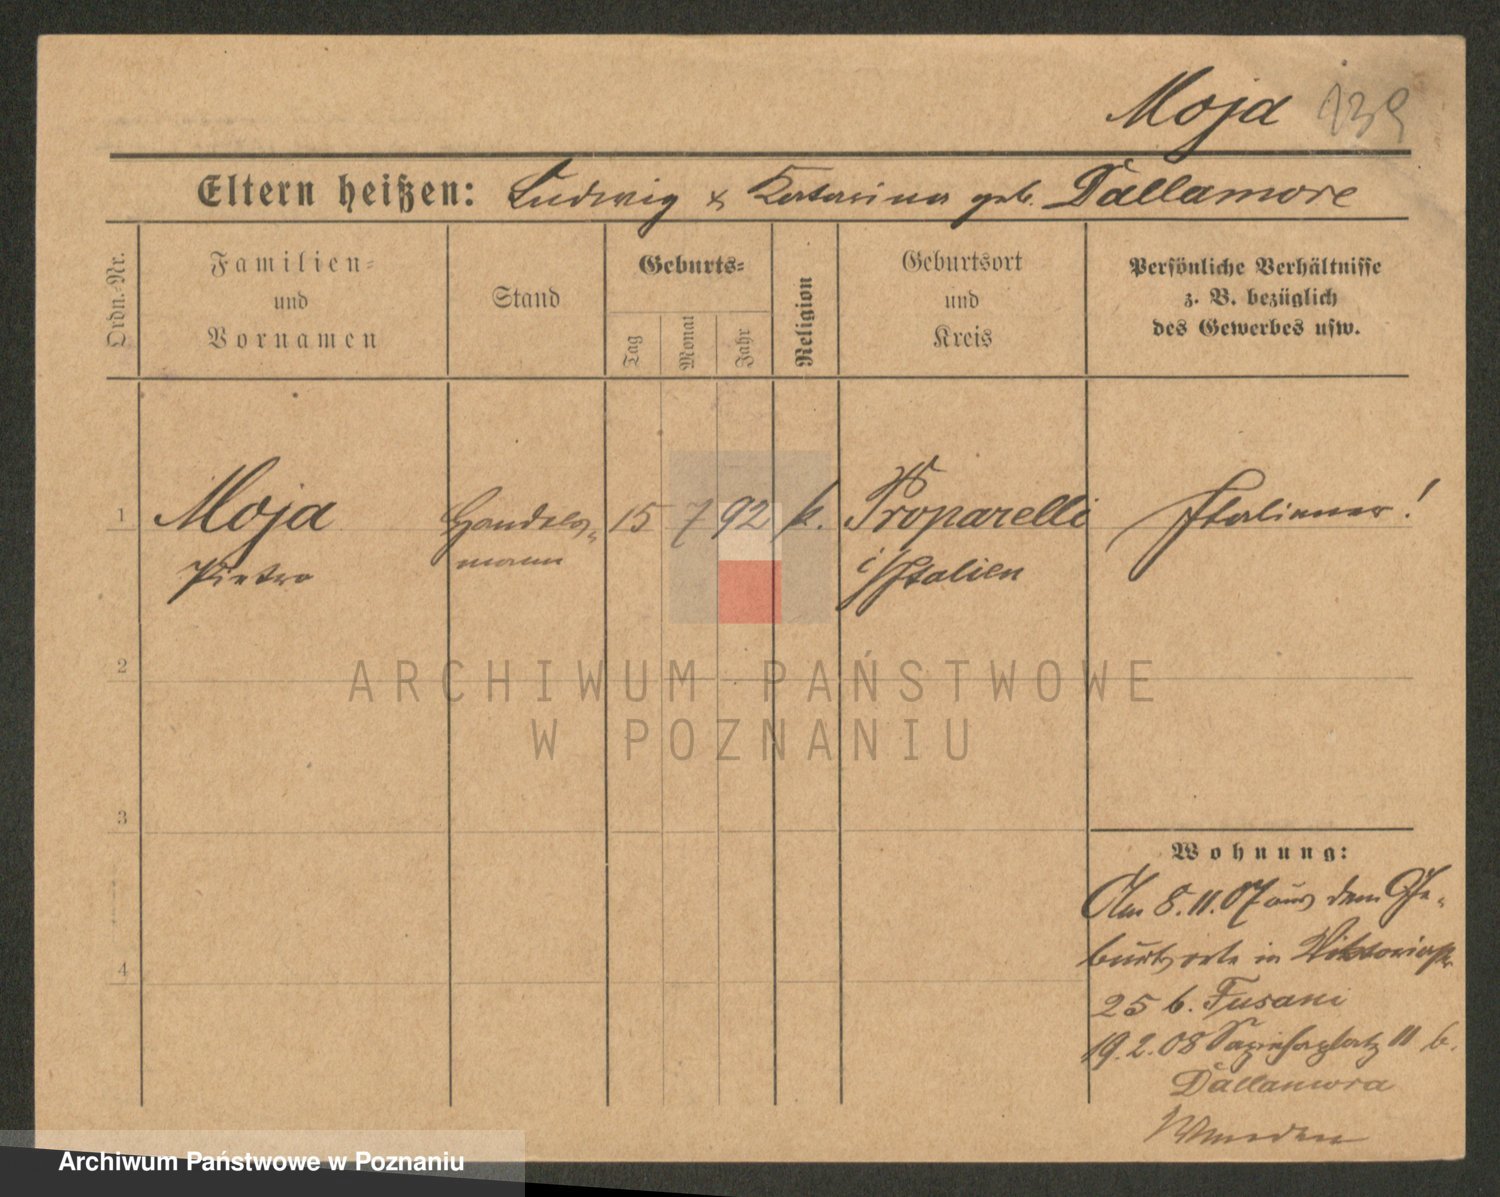 Moja 139
Eltern heißen: Ludwig & Katarina geb. Dallamore
Ordn.-Nr.
Familien-
und
Vornamen
Stand
Geburts-
Tag
Monat
Jahr
Religion
Geburtsort
und
Kreis
Persönliche Verhältnisse
z. B. bezüglich
des Gewerbes usw.
1
Moja
Pietro
Handels-
mann
15 7 92 k.
Proparelli
i/Italien
Italiener!
2
ARCHIWUM PAŃSTWOWE
W POZNANIU
3
4
Wohnung:
Am 8.11.07 aus dem Ge-
burtsorte in Viktoriastr
25 b. Fusani
19.2.08 Sapiehaplatz 11 b.
Dallamora
Archiwum Państwowe w Poznaniu